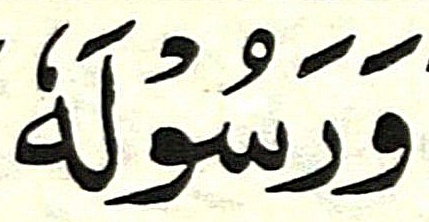 وَرَسُوْلَهٗ